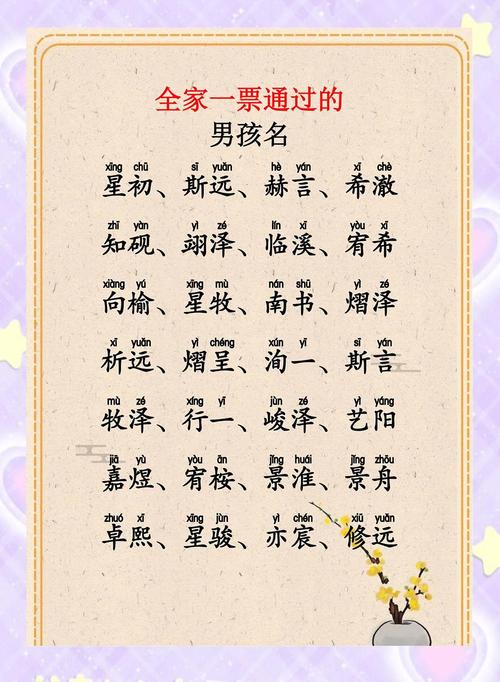 全家一票通过的
男孩名
xīng chū sī yuǎn hè yán xī chè
星初、斯远、赫言、希澈
zhī yàn yì zé lín xī yòu xī
知砚、翊泽、临溪、宥希
xiàng yú xīng mù nán shū yì zé
向榆、星牧、南书、熠泽
xī yuǎn yì chéng xún yī sī yán
析远、熠呈、洵一、斯言
mù zé xíng yī jùn zé yì yáng
牧泽、行一、峻泽、艺阳
jiā yù yòu ān jǐng huái jǐng zhōu
嘉煜、宥桉、景淮、景舟
zhuó xī xīng jùn yì chén xiū yuǎn
卓熙、星骏、亦宸、修远